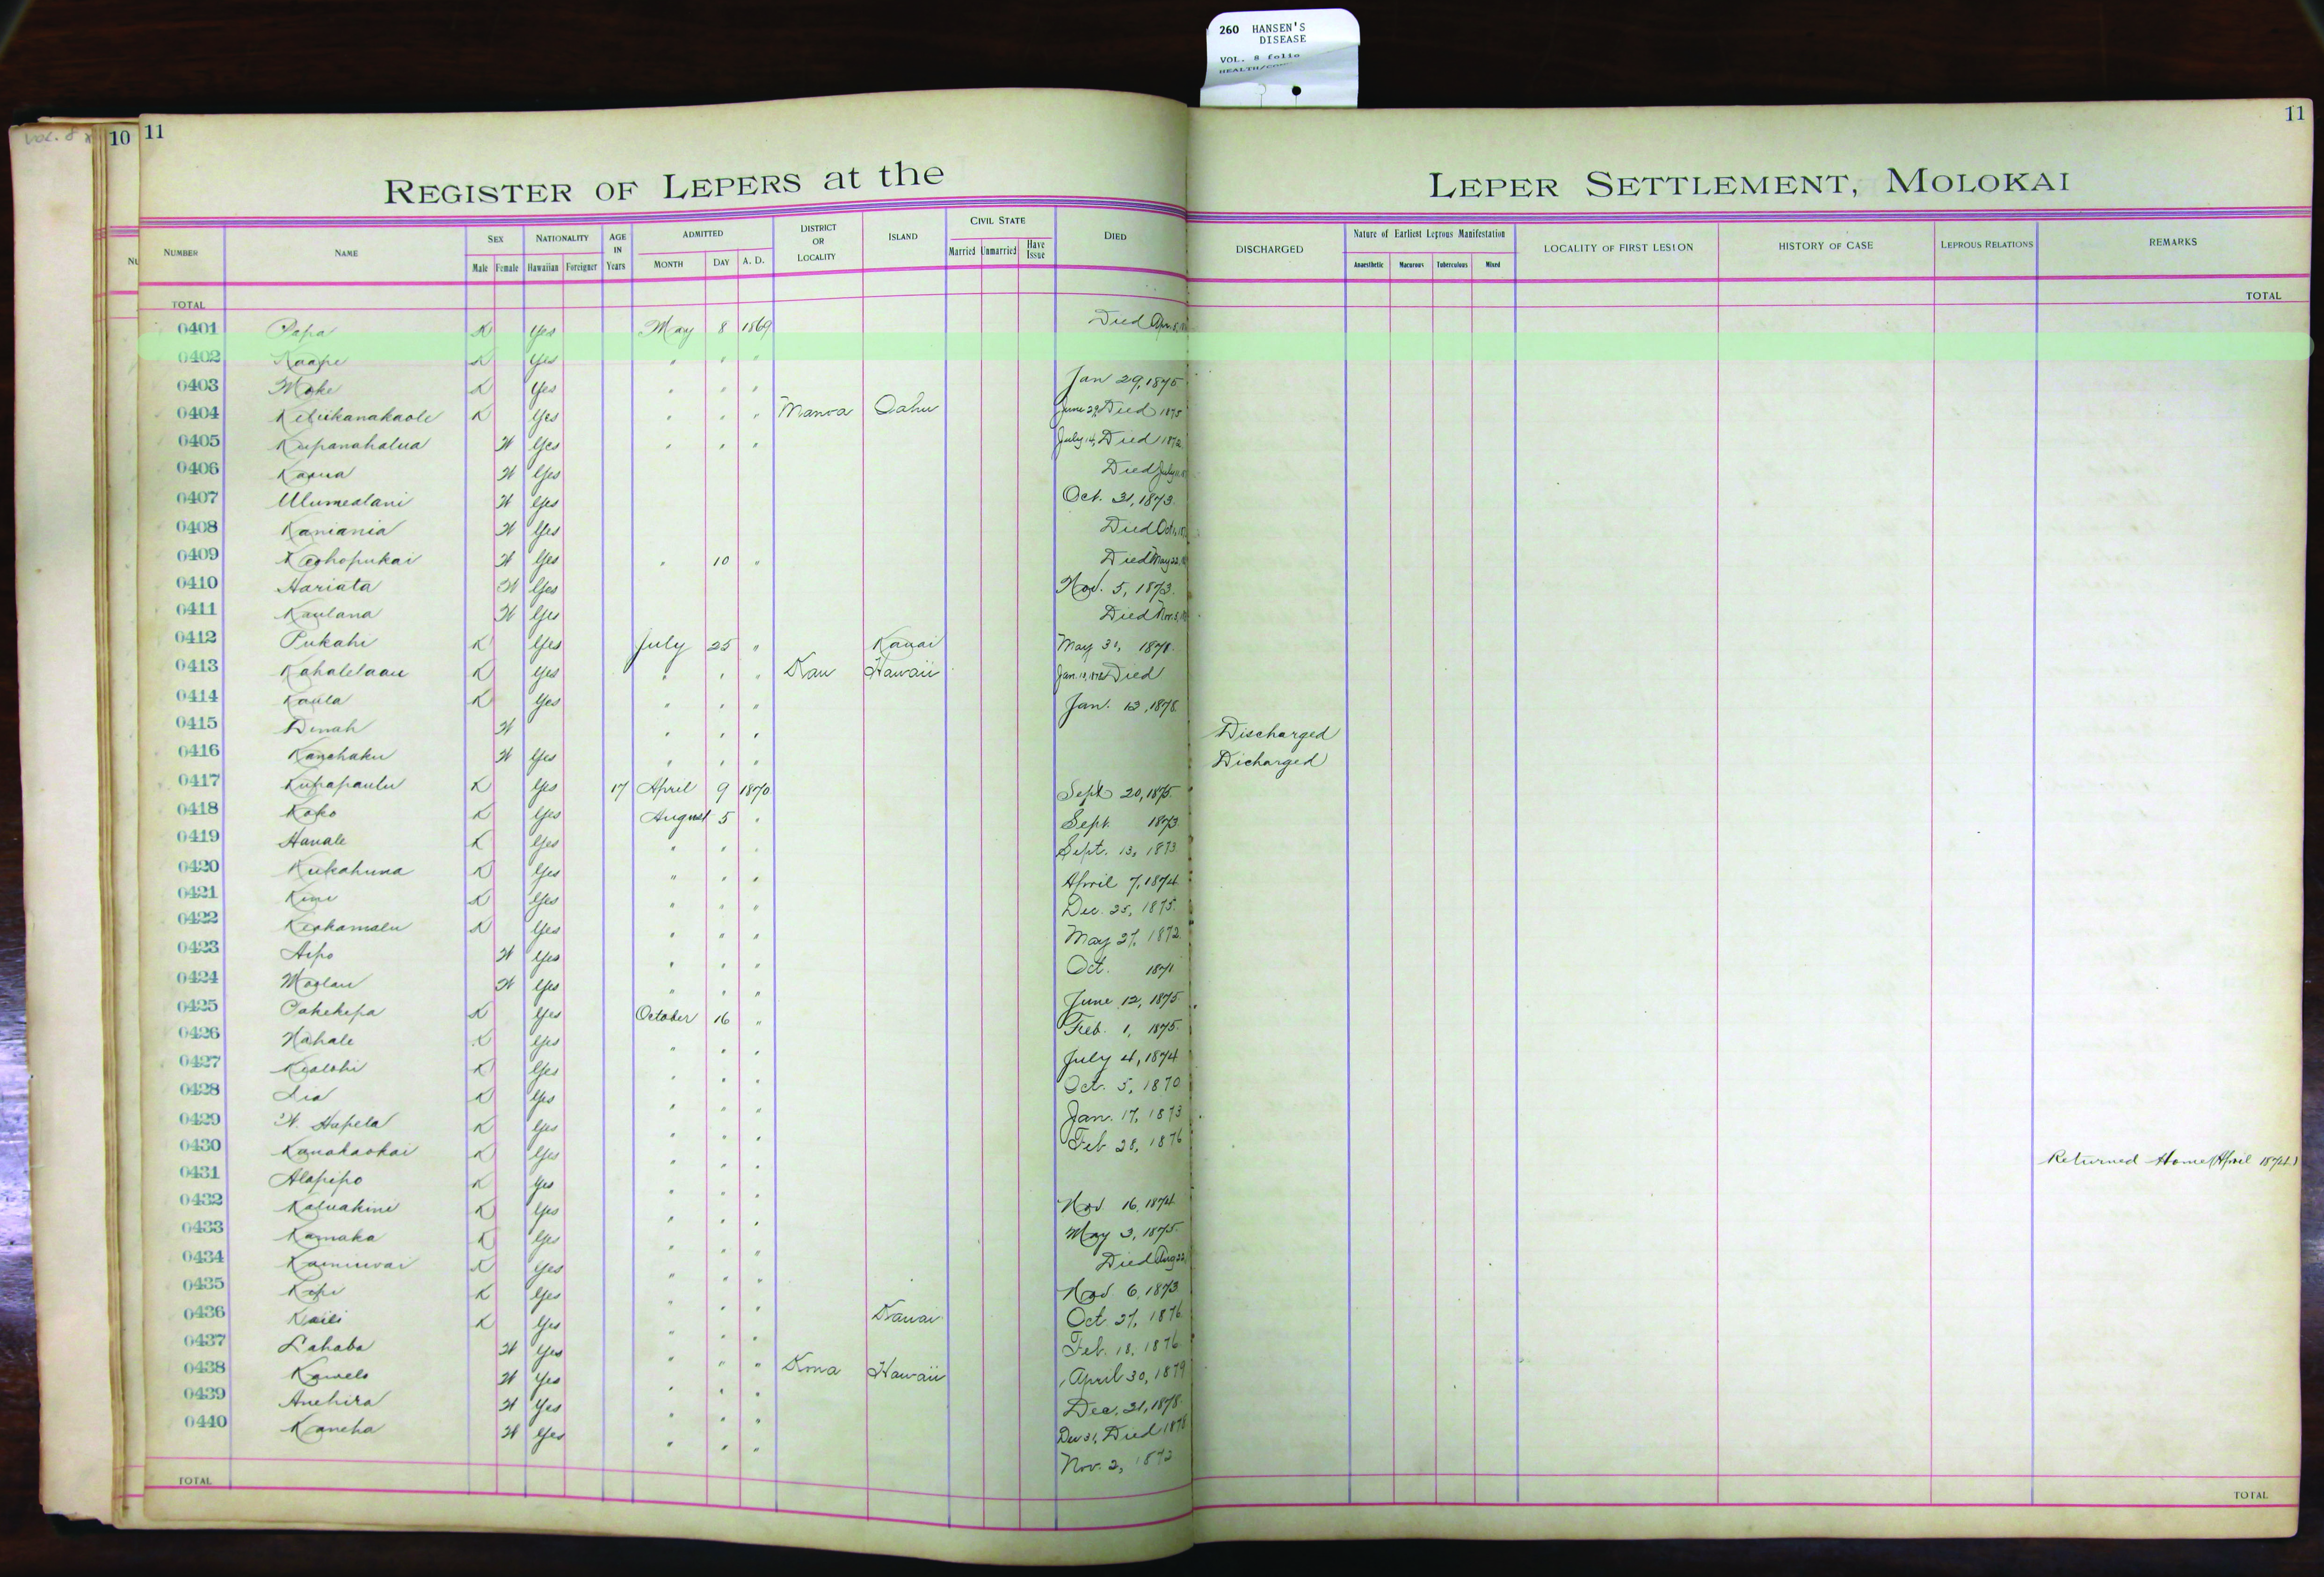 260 HANSEN'S
DISEASE
VOL. 8 folio
VOL. 8
10
11
11
REGISTER OF LEPERS at the LEPER SETTLEMENT, MOLOKAI
NUMBER NAME SEX Male Female NATIONALITY Hawaiian Foreigner AGE IN Years ADMITTED MONTH DAY A. D. DISTRICT OR LOCALITY ISLAND CIVIL STATE Married Unmarried Have Issue DIED DISCHARGED Nature of Earliest Leprous Manifestation Anaesthetic Macurous Tuberculous Mixed LOCALITY OF FIRST LESION HISTORY OF CASE LEPROUS RELATIONS REMARKS
TOTAL TOTAL
0401 Papa K Yes May 8 1869 Died Apr.
0402 Kaape K Yes " " "
0403 Moke K Yes " " " Jan 29, 1875
0404 Keliikanakaole K Yes " " " Manoa Oahu June 29, Died 1875
0405 Kupanahalua W Yes " " " July 14, Died 1872
0406 Kaona W Yes Died July
0407 Ulumealani W Yes Oct. 31, 1873.
0408 Kaniania W Yes Died Oct
0409 Keohopukai W Yes " 10 " Died May 22,
0410 Hariata W Yes Nov. 5, 1873.
0411 Kaulana W Yes Died Nov. 3,
0412 Pukahi K Yes July 25 " Kauai May 31, 1871.
0413 Kahalelaau K Yes " " " Kau Hawaii Jan. Died
0414 Kaula K Yes " " " Jan. 13, 1878.
0415 Dinah W " " " Discharged
0416 Kanehaku W Yes " " " Dicharged
0417 Kupapaulu K Yes 17 April 9 1870 Sept 20, 1875.
0418 Koko K Yes August 5 " Sept. 1873
0419 Hanale K Yes " " " Sept. 13, 1873
0420 Kukahuna K Yes " " " April 7, 1874
0421 Kini K Yes " " " Dec. 25, 1875.
0422 Keakamalu K Yes " " " May 27, 1872
0423 Aipo W Yes " " " Oct. 1871
0424 Moolau W Yes " " " June 12, 1875
0425 Pakekepa K Yes October 16 " Feb. 1, 1875.
0426 Nahale K Yes " " " July 4, 1874
0427 Kealohi K Yes " " " Oct. 5, 1870
0428 Lia K Yes " " " Jan. 17, 1873
0429 W. Hapela K Yes " " " Feb 28, 1876
0430 Kanakaokai K Yes " " " Returned Home (April 1874)
0431 Alapipo K Yes " " " Nov 16, 1874
0432 Kaluakini K Yes " " " May 3, 1875.
0433 Kamaka K Yes " " " Died Aug 22,
0434 Kainiwai K Yes " " " Nov. 6, 1873
0435 Kepi K Yes " " " Oct. 27, 1876
0436 Kaili K Yes " " " Kauai Feb. 18, 1876
0437 Lahaba W Yes " " " Kona Hawaii April 30, 1879
0438 Kawelo W Yes " " " Dec. 31, 1878.
0439 Anehira W Yes " " " Dec 31, Died 1878
0440 Kaneha W Yes " " " Nov. 2, 1872
TOTAL TOTAL